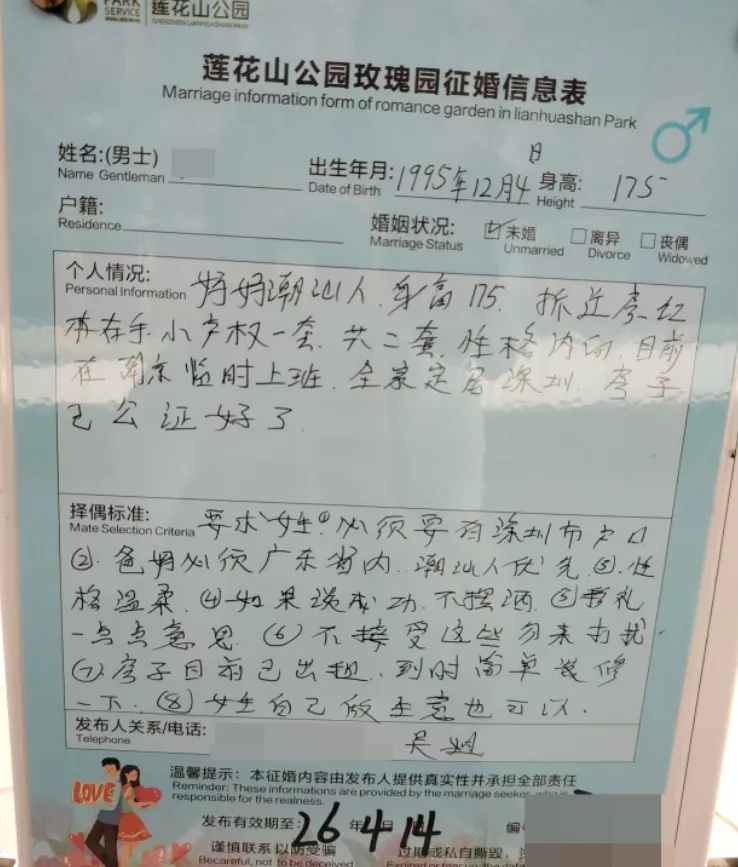 PARK
SERVICE
莲花山公园
SHENZHEN LIANHUASHAN PARK
莲花山公园玫瑰园征婚信息表
Marriage information form of romance garden in lianhuashan Park
姓名:(男士)
Name Gentleman
出生年月: 1995年12月4日
Date of Birth
身高: 175
Height
户籍:
Residence
婚姻状况:
Marriage Status
未婚
Unmarried
离异
Divorce
丧偶
Widowed
个人情况:
Personal Information
妈妈潮汕人.身高175. 拆迁房红
本在手小产权一套.共二套.性格内向.目前
在南京临时上班.全家定居深圳.房子
已公证好了
择偶标准:
Mate Selection Criteria
要求女生①必须要有深圳市户口
②.爸妈必须广东省内.潮汕人优先③.性
格温柔.④如果谈成功.不摆酒.⑤彩礼
一点点意思.⑥不接受这些勿来打扰.
⑦.房子目前已出租.到时简单装修
一下.⑧女生自己做主意也可以.
发布人关系/电话:
Telephone
吴姐
LOVE
温馨提示：本征婚内容由发布人提供真实性并承担全部责任
Reminder: These informations are provided by the marriage seeker, who is
responsible for the realness.
发布有效期至: 26年4月14日
谨慎联系以防受骗
Becareful, not to be deceived
过期或私自撕毁，